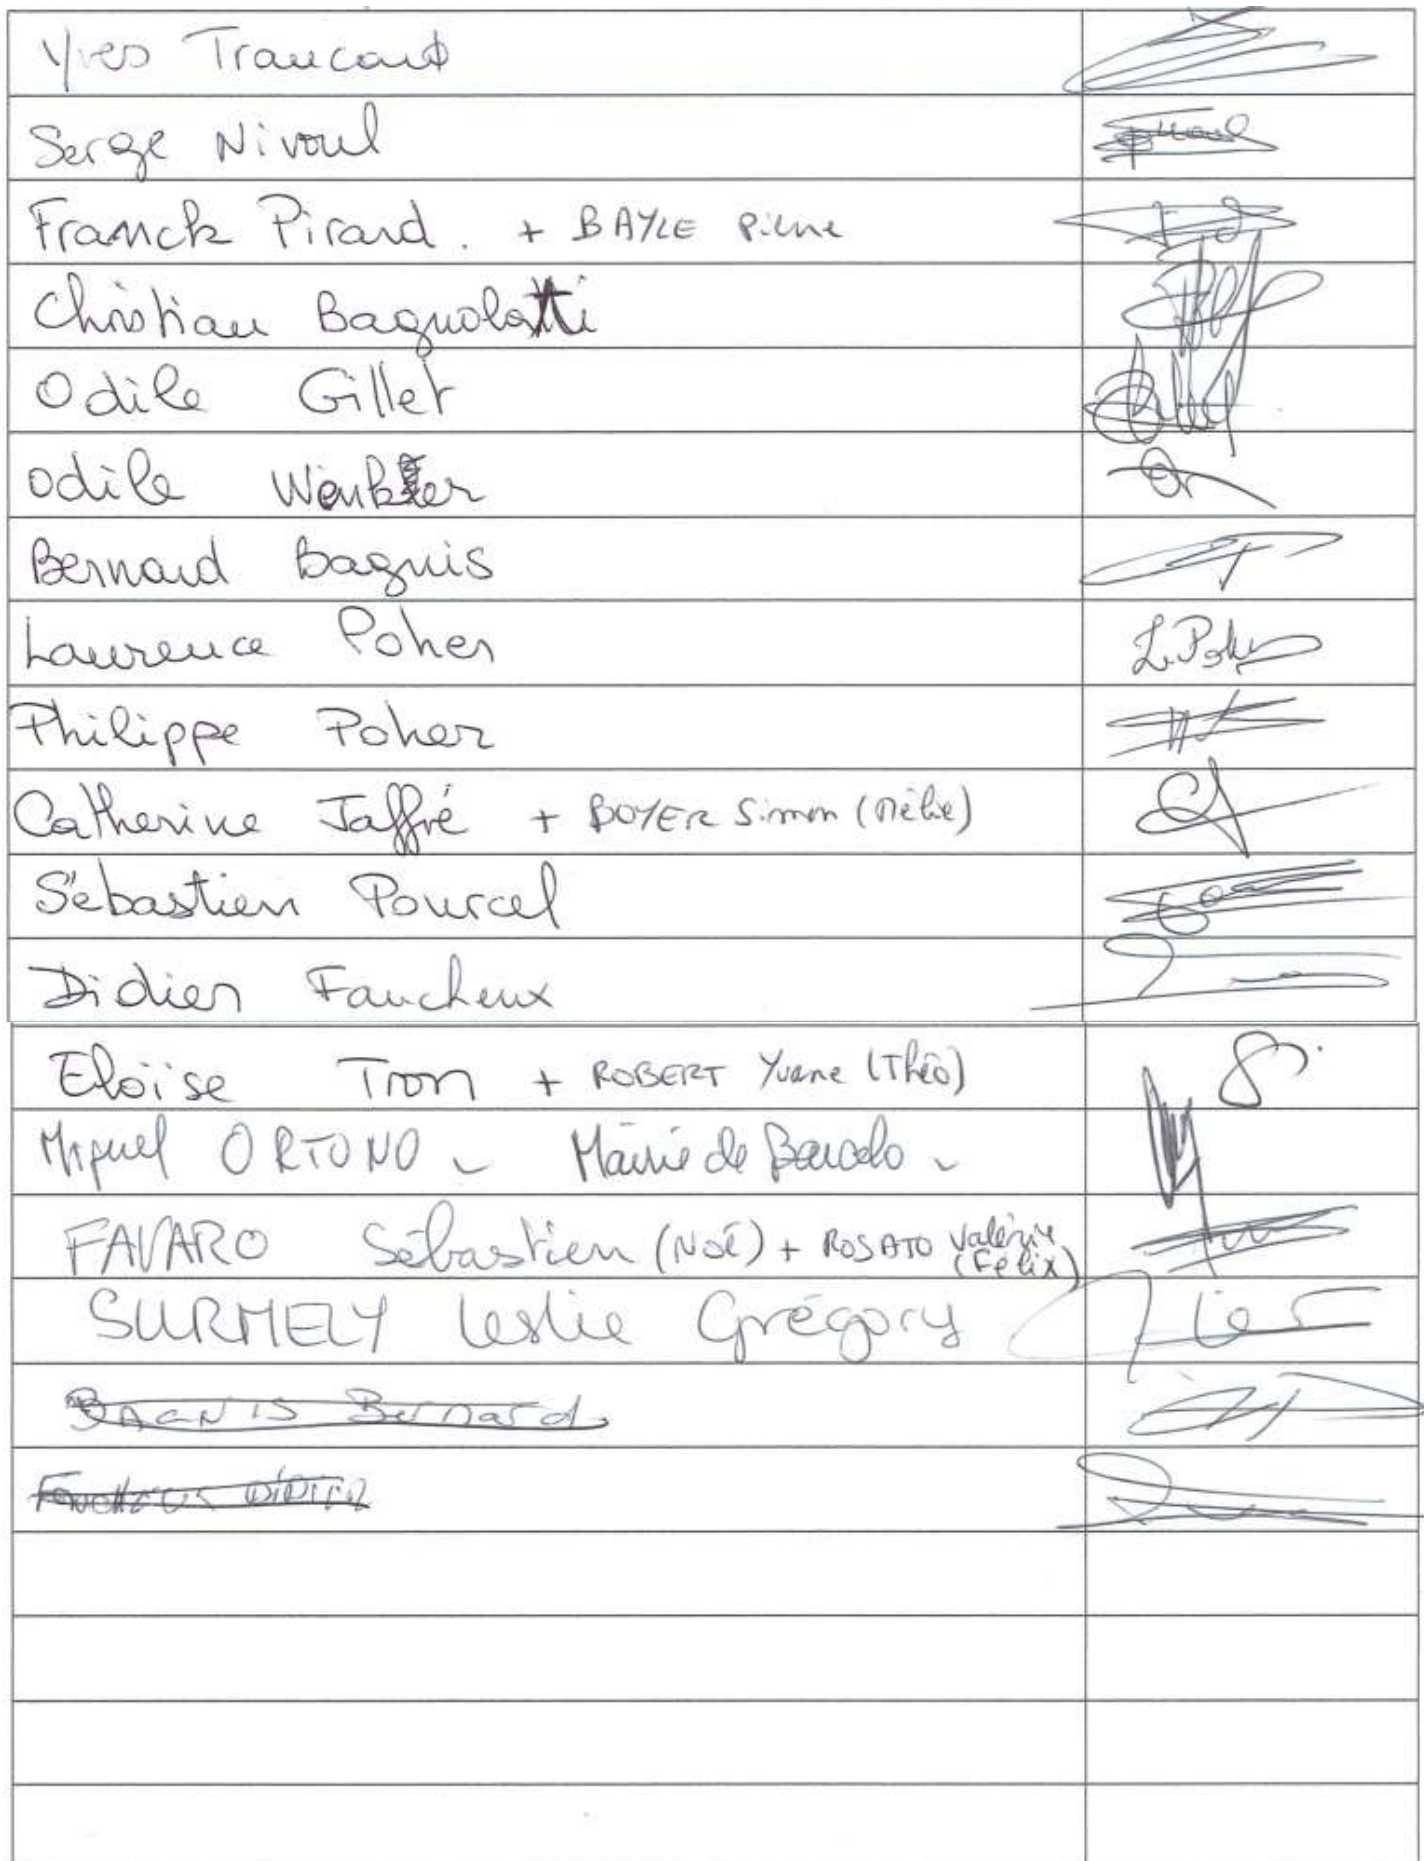 Yves Traucaut
Serge Nivoul
Franck Pirard. + BAYLE Pierre
Christian Bagnolatti
Odile Gillet
Odile Winkler
Bernard Bagnis
Laurence Poher
L. Poher
Philippe Poher
Catherine Jaffré + BOYER Simon (Mélie)
Sébastien Pourcel
Didier Faucheux
Eloïse Tron + ROBERT Yvane (Théo)
Miguel ORTUNO - Mairie de Barcelo -
FAVARO Sébastien (Noé) + ROSATO Valérie (Félix)
SURMELY Leslie Grégory
BAGNIS Bernard
FAUCHEUX DIDIER